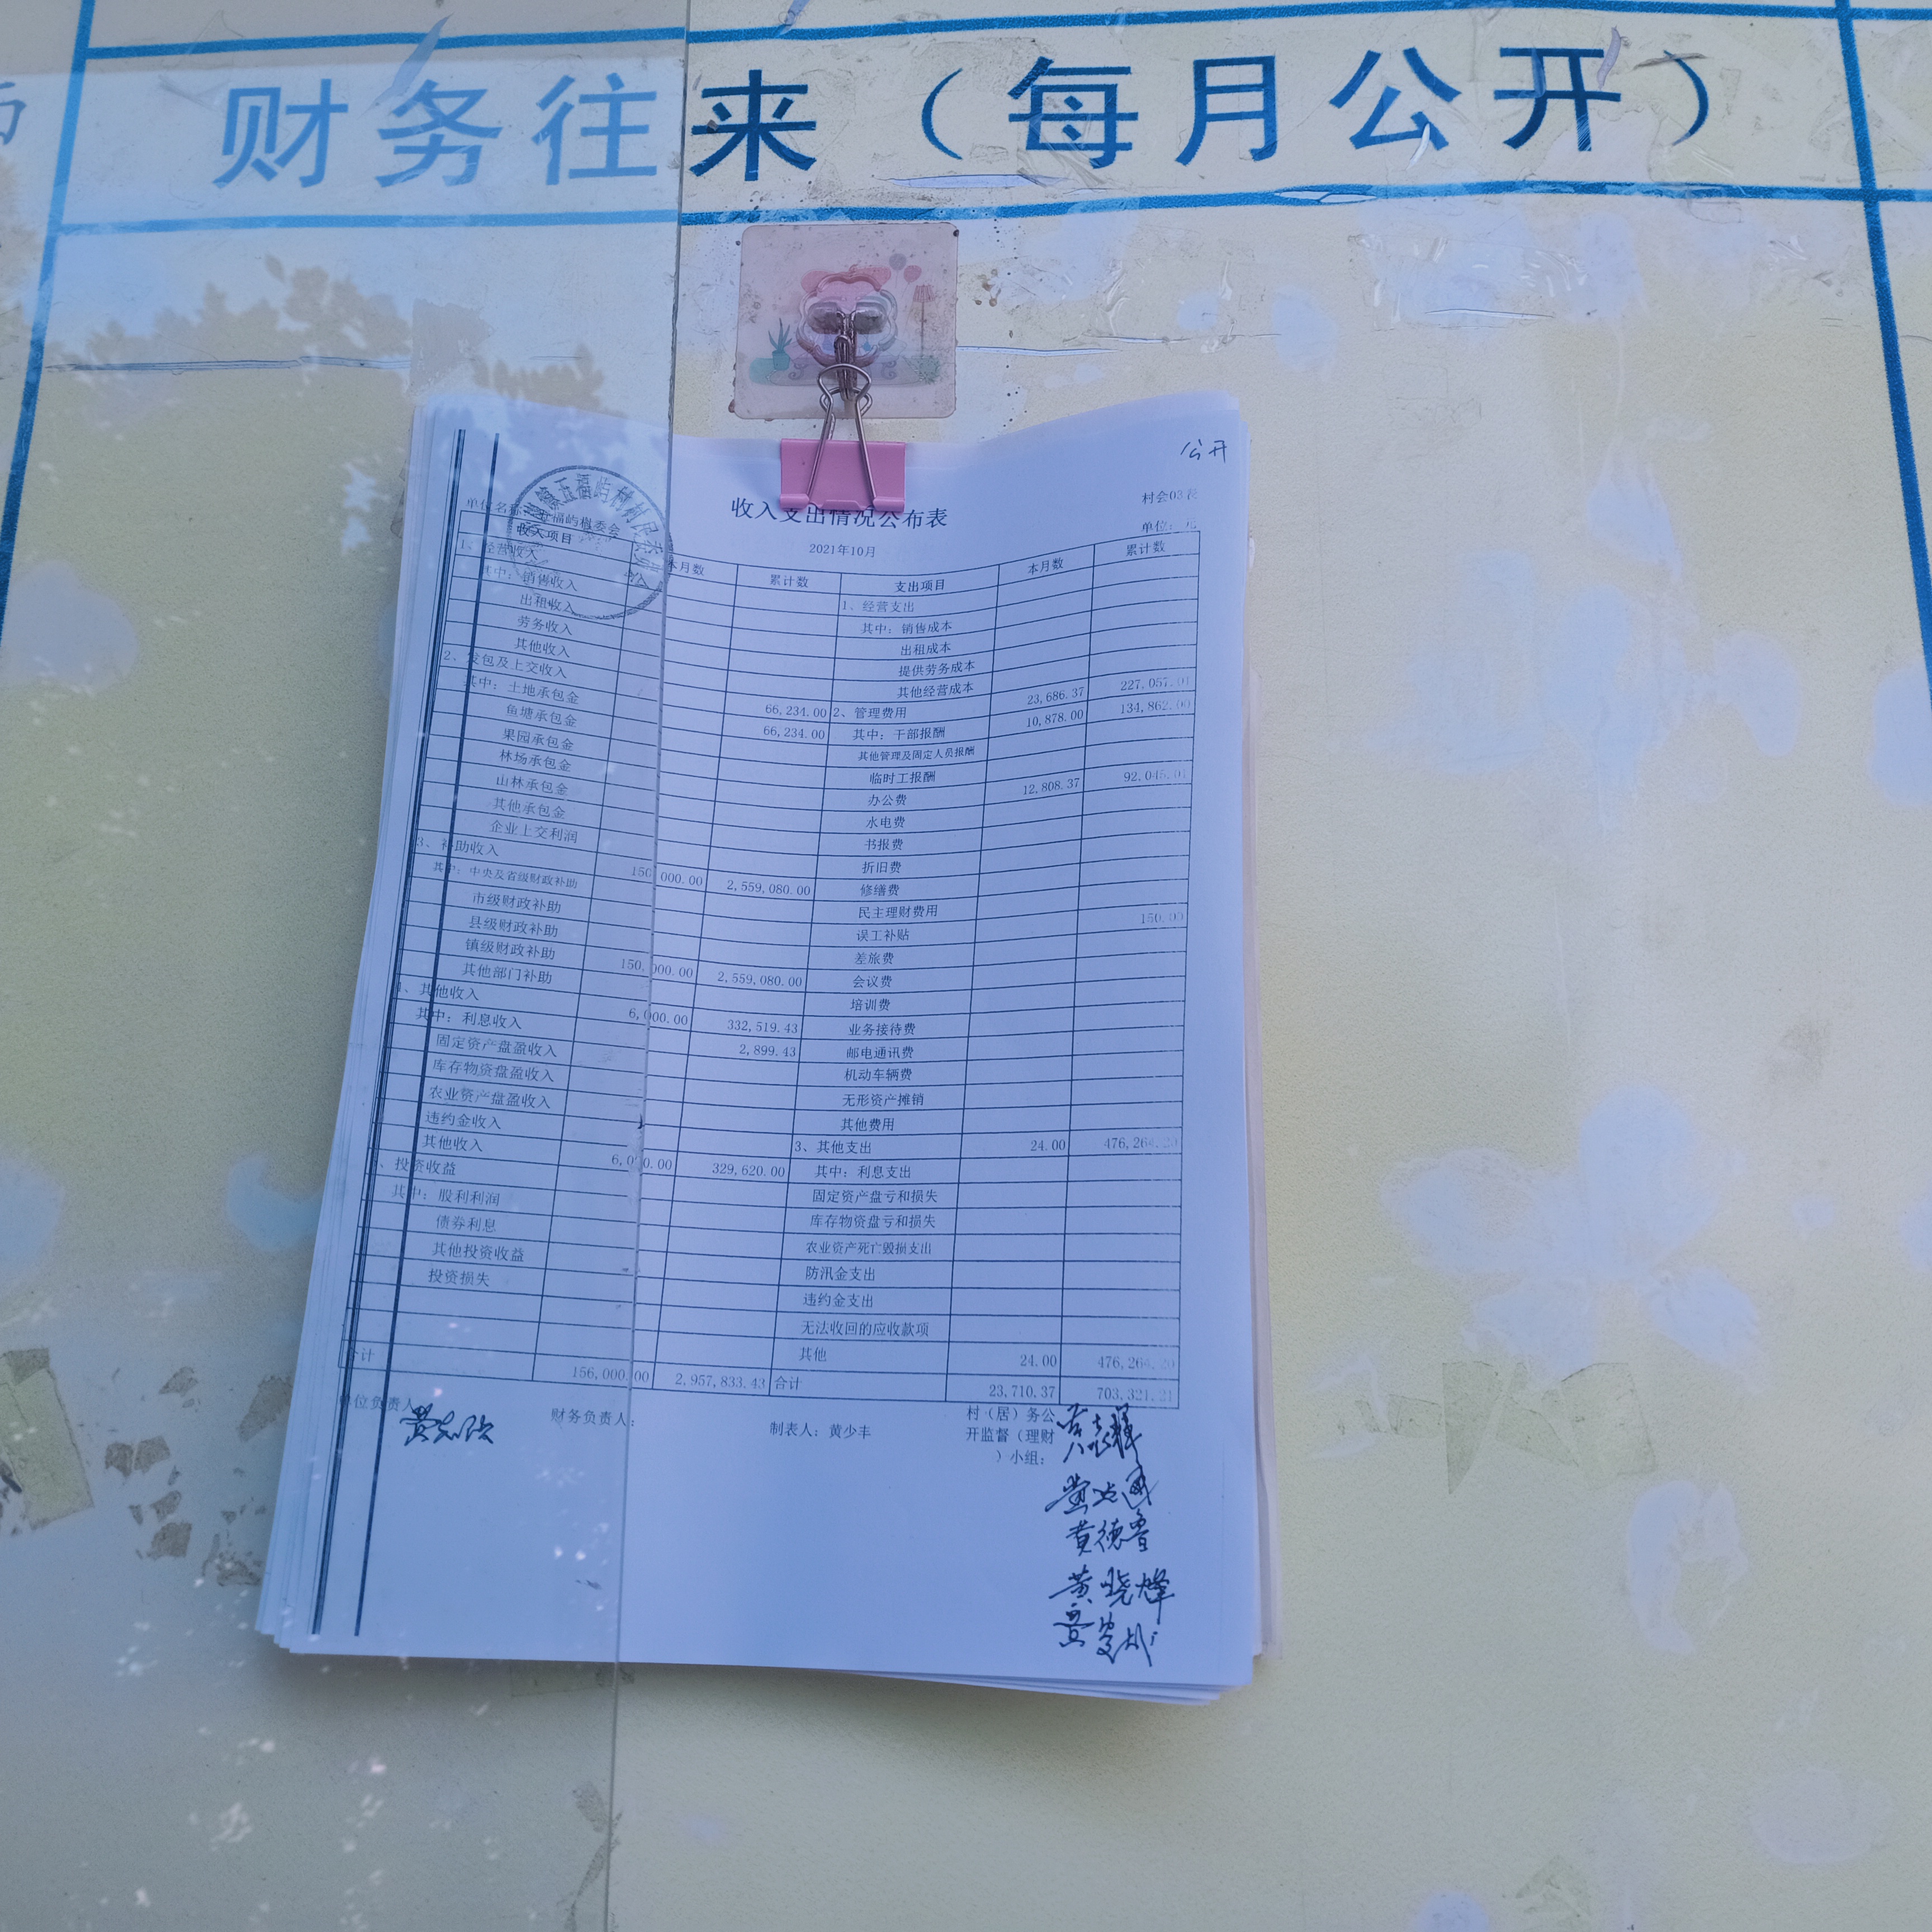 财务往来（每月公开）
公开
收入支出情况公布表
村会03表
2021年10月
单位：元
收入项目 本月数 累计数 支出项目 本月数 累计数
1、经营收入 1、经营支出
其中：销售收入 其中：销售成本
出租收入 出租成本
劳务收入 提供劳务成本
其他收入 其他经营成本
2、发包及上交收入 66,234.00 2、管理费用 23,686.37 227,057.01
其中：土地承包金 66,234.00 其中：干部报酬 10,878.00 134,862.00
鱼塘承包金 其他管理及固定人员报酬
果园承包金 临时工报酬
林场承包金 办公费 12,808.37 92,045.01
山林承包金 水电费
其他承包金 书报费
企业上交利润 折旧费
3、补助收入 150,000.00 2,559,080.00 修缮费
其中：中央及省级财政补助 民主理财费用
市级财政补助 误工补贴 150.00
县级财政补助 差旅费
镇级财政补助 150,000.00 2,559,080.00 会议费
其他部门补助 培训费
4、其他收入 6,000.00 332,519.43 业务接待费
其中：利息收入 2,899.43 邮电通讯费
固定资产盘盈收入 机动车辆费
库存物资盘盈收入 无形资产摊销
农业资产盘盈收入 其他费用
违约金收入 3、其他支出 24.00 476,264.20
其他收入 6,000.00 329,620.00 其中：利息支出
、投资收益 固定资产盘亏和损失
其中：股利利润 库存物资盘亏和损失
债券利息 农业资产死亡毁损支出
其他投资收益 防汛金支出
投资损失 违约金支出
无法收回的应收款项
其他 24.00 476,264.20
合计 156,000.00 2,957,833.43 合计 23,710.37 703,321.21
单位负责人
财务负责人：
制表人：黄少丰
村（居）务公
开监督（理财
）小组：
黄德鲁
黄晓烽